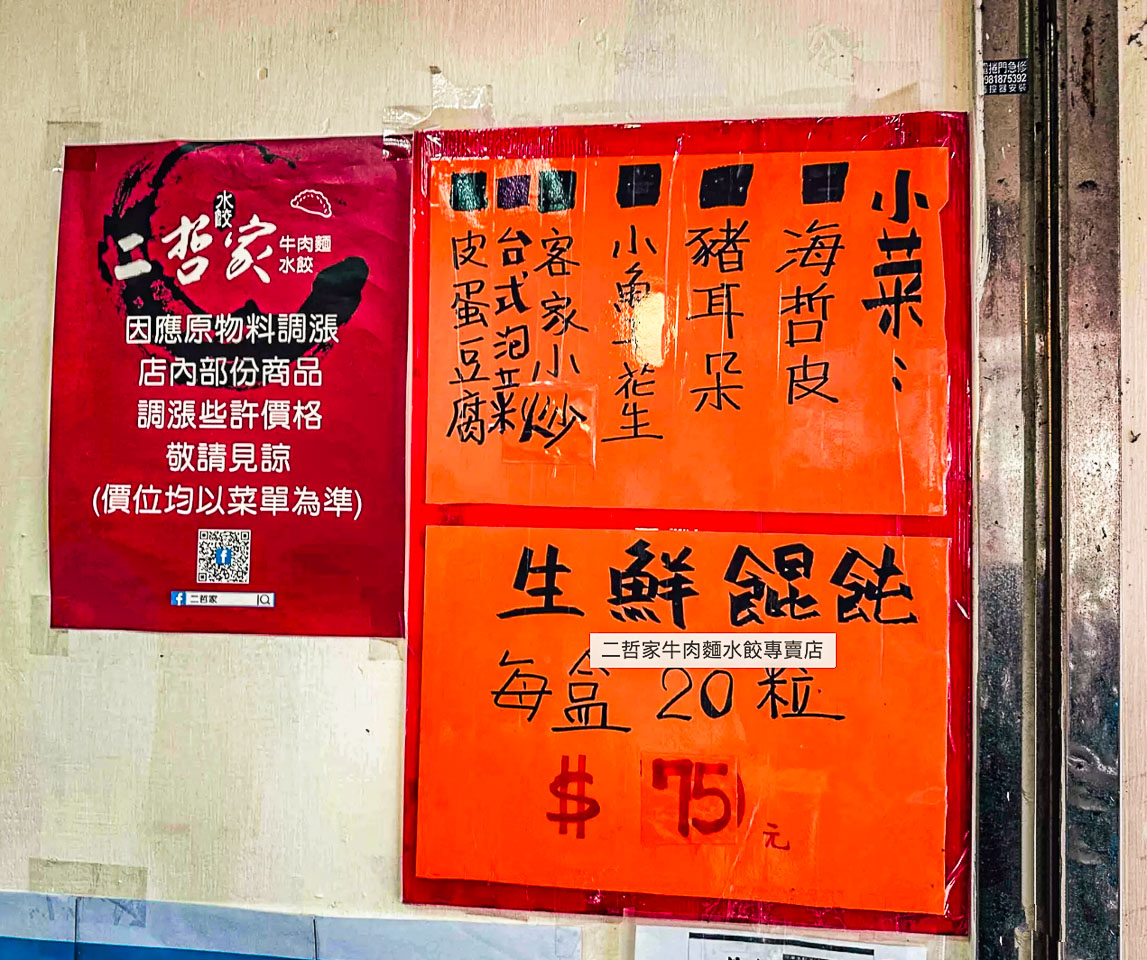 水餃
二哲家
牛肉麵
水餃
因應原物料調漲
店內部份商品
調漲些許價格
敬請見諒
(價位均以菜單為準)
二哲家
小菜:
海哲皮
豬耳朵
小魚干花生
客家小炒
台式泡菜
皮蛋豆腐
生鮮餛飩
二哲家牛肉麵水餃專賣店
每盒20粒
$75元
捲門急修
981875392